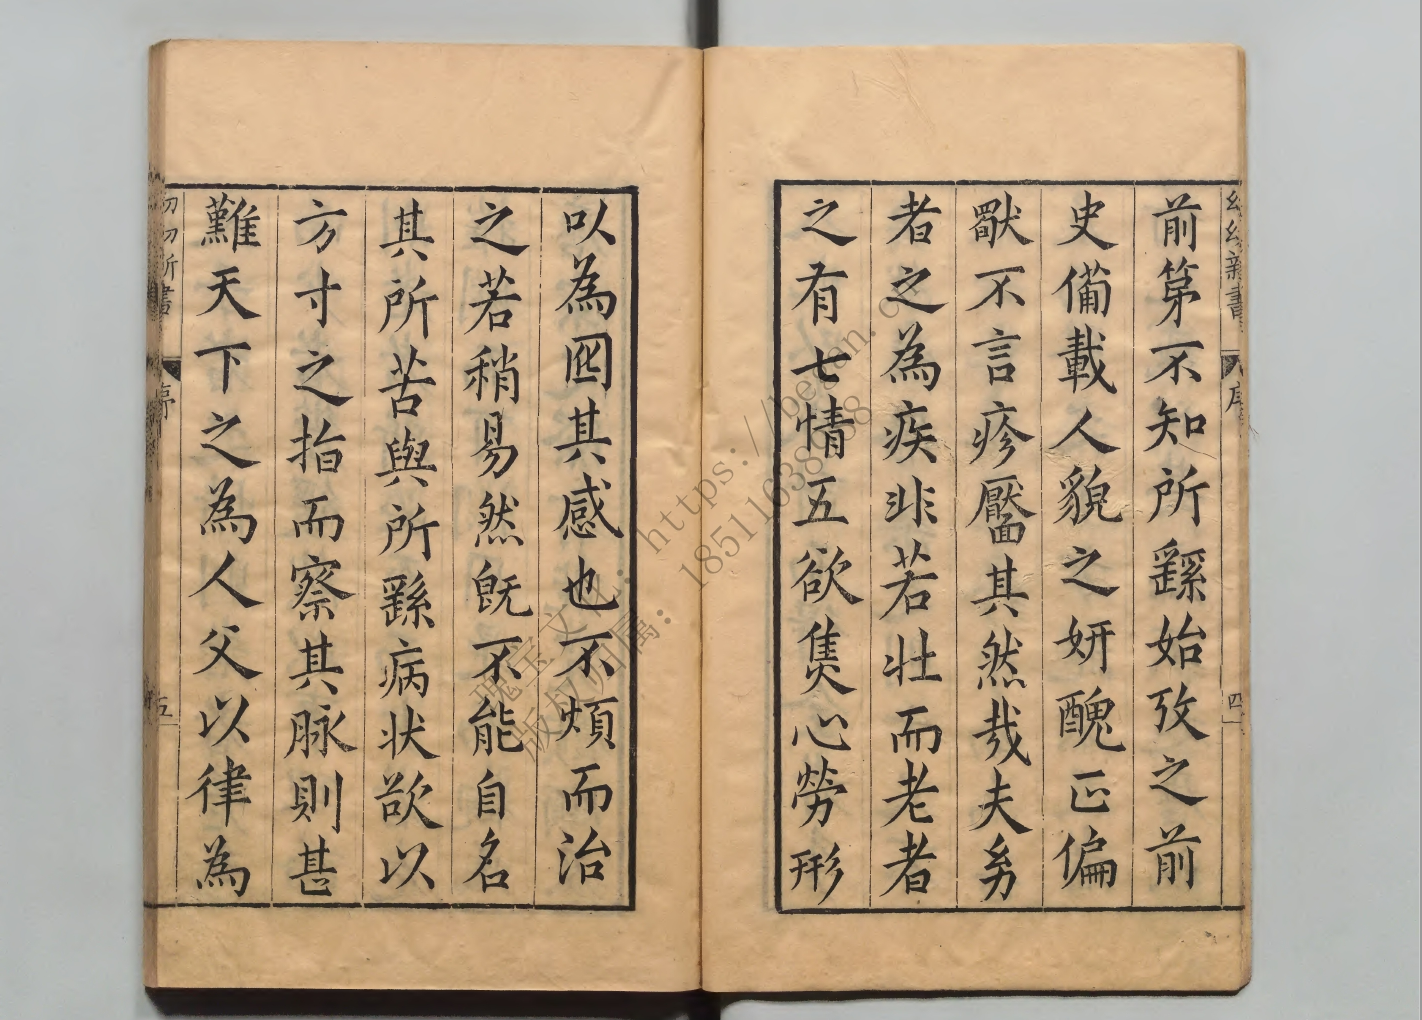 幼幼新書
序
四
前第不知所繇始攷之前
史備載人貌之妍醜正偏
獸不言疹靨其然哉夫匆
者之為疾非若壯而老者
之有七情五欲焦心勞形
以為囮其感也不煩而治
之若稍易然旣不能自名
其所苦與所繇病状欲以
方寸之指而察其脉則甚
難天下之為人父以律為
序
五
瑰宝文化:https://bean.c
版权归属:18511638988